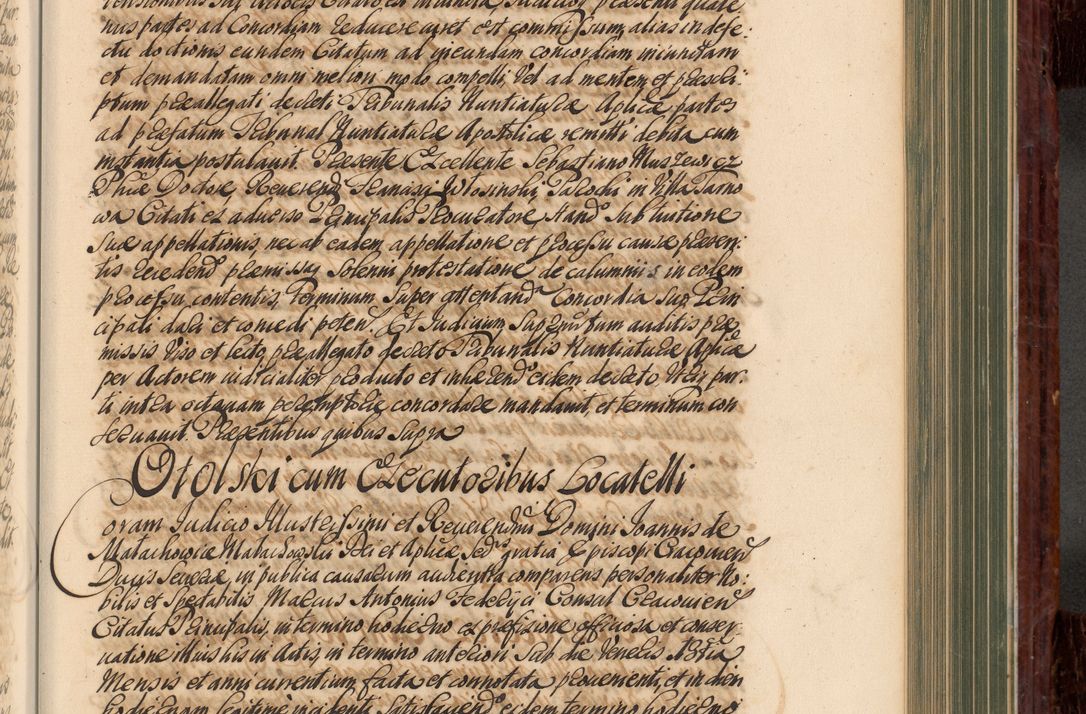 nus partes ad Concordiam reducere curet est commissum, alias in defe:
ctu do ctionis eundem Citatum ad ineundam concordiam iniunctam
et demandatam omni meliori modo compelli, Vel ad mentem et præscri
ptum præallegati decreti Tribunalis Nuntiaturæ Aplicæ partes
ad præfatum Tribunal Nuntiaturæ Apostolicæ remitti debita cum
instantia postulavit Præsente Excellente Sebastiano Muszewicz
Phiæ Doctore, Reverend Włosinski Parochi in Villa Tarno
wa Citati ex adverso Principalis Procuratore, stand sub tuitione
suæ appellationis nec ab eadem appellatione et processu causæ præsen:
tis recedend præmissaq Solenni protestatione, de calumniis in eodem
processu contentis, Terminum super attentand Concordia suo Prin
cipali dari et concedi peten. Et Iudicium supranotatum auditis præ
missis Viso et lecto præallegato decreto Tribunalis Nuntiaturæ Aplicæ
per Actorem iudicialiter producto et inhærend eidem decreto Utriq par:
ti intra octavam peremptorie concordare mandavit, et terminum con
servavit. Præsentibus quibus supra
Otolski cum Executoribus Locatelli
Coram Iudicio Illustrissimi et Reverendmi Domini Ioannis de
Małachowice Małachowski Dei et Aplicæ Sed gratia Episcopi Cracovien
Ducis Severiæ, in publica causarum audientia comparens personaliter No:
bilis et Spectabilis Marcus Antonius Federici Consul Cracovien
Citatus Principalis, in termino hodierno ex præfixione officiosa et conser
vatione in Actis, in termino anteriori sub die Veneris
Mensis et anni currentium facta et connotata provenienti, et in diem
hodiernam legitime incidenti, satisfaciend eidem termino hodierno